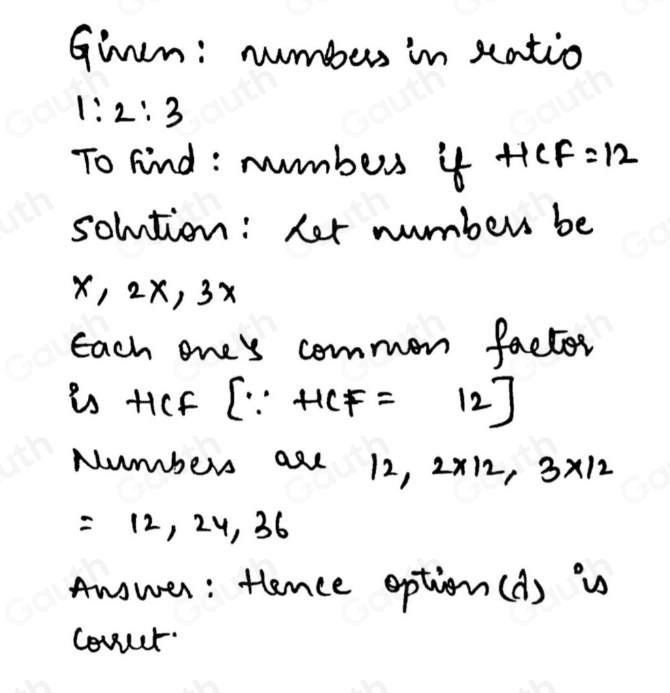 Given: numbers in ratio
1:2:3
To find: numbers if HCF=12
solution: Let numbers be
x, 2x, 3x
Each one's common factor
is HCF [∵ HCF= 12]
Numbers are 12, 2x12, 3x12
= 12, 24, 36
Answer: Hence option (d) is
correct.